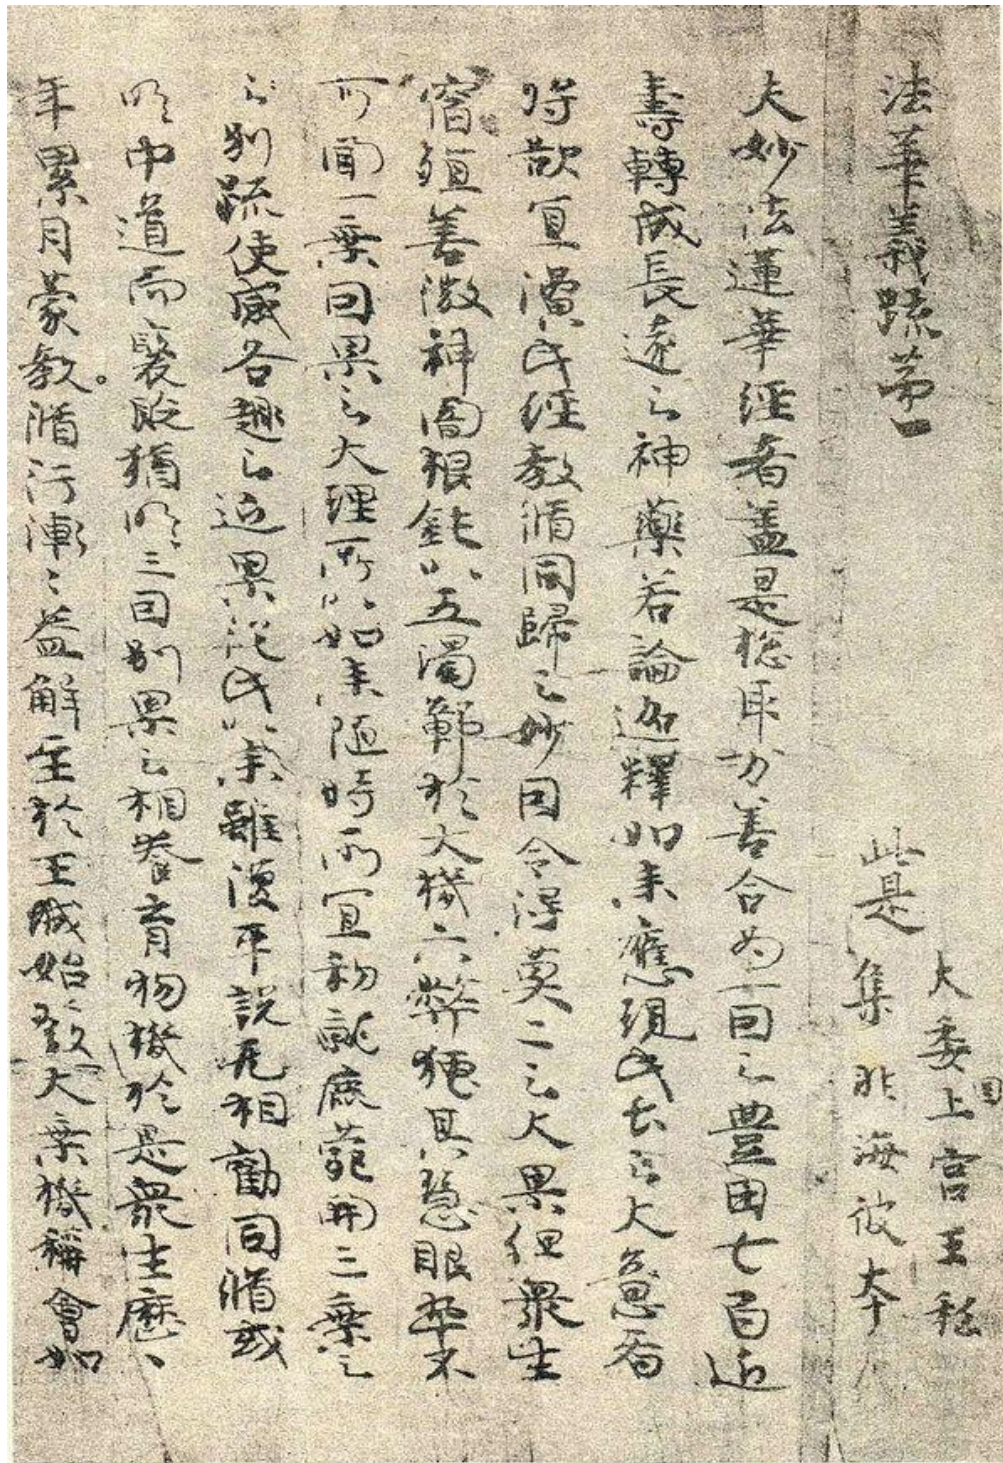 法華義疏第一
此是
大委国上宮王私
集非海彼本
夫妙法蓮華経者盖是惣取万善合為一因之豊田七百近
壽轉成長遠之神藥若論迦釋如来應現此土之大意者
将欲宜演此経教脩同歸之妙因令得莫二之大果但衆生
宿殖善微神闇根鈍以五濁鄣於大機六弊掩其慧眼卒不
可聞一乗因果之大理所以如来随時所宜初就鹿苑開三乗之
之別疏使感各趣之近果従此以来雖復平説无相勸同脩或
明中道而褒貶猶明三因別果之相養育物機於是衆生歴、
年累月蒙教脩行漸々益解至於王城始發大乗機稱會如